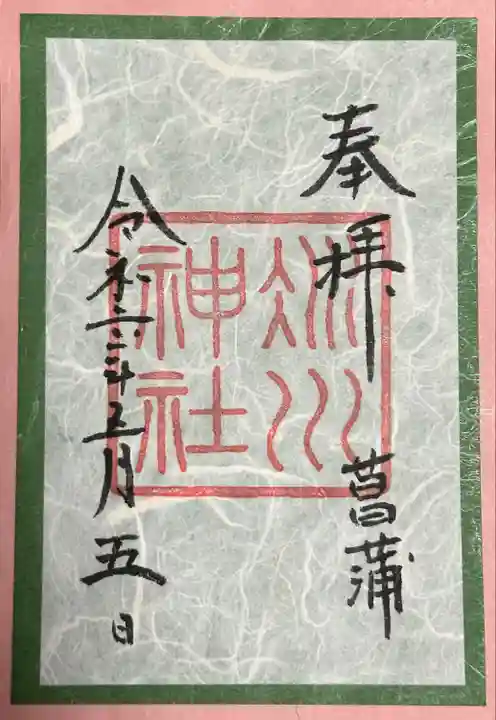 奉拝
菖蒲
冰川
神社
令和六年五月五日